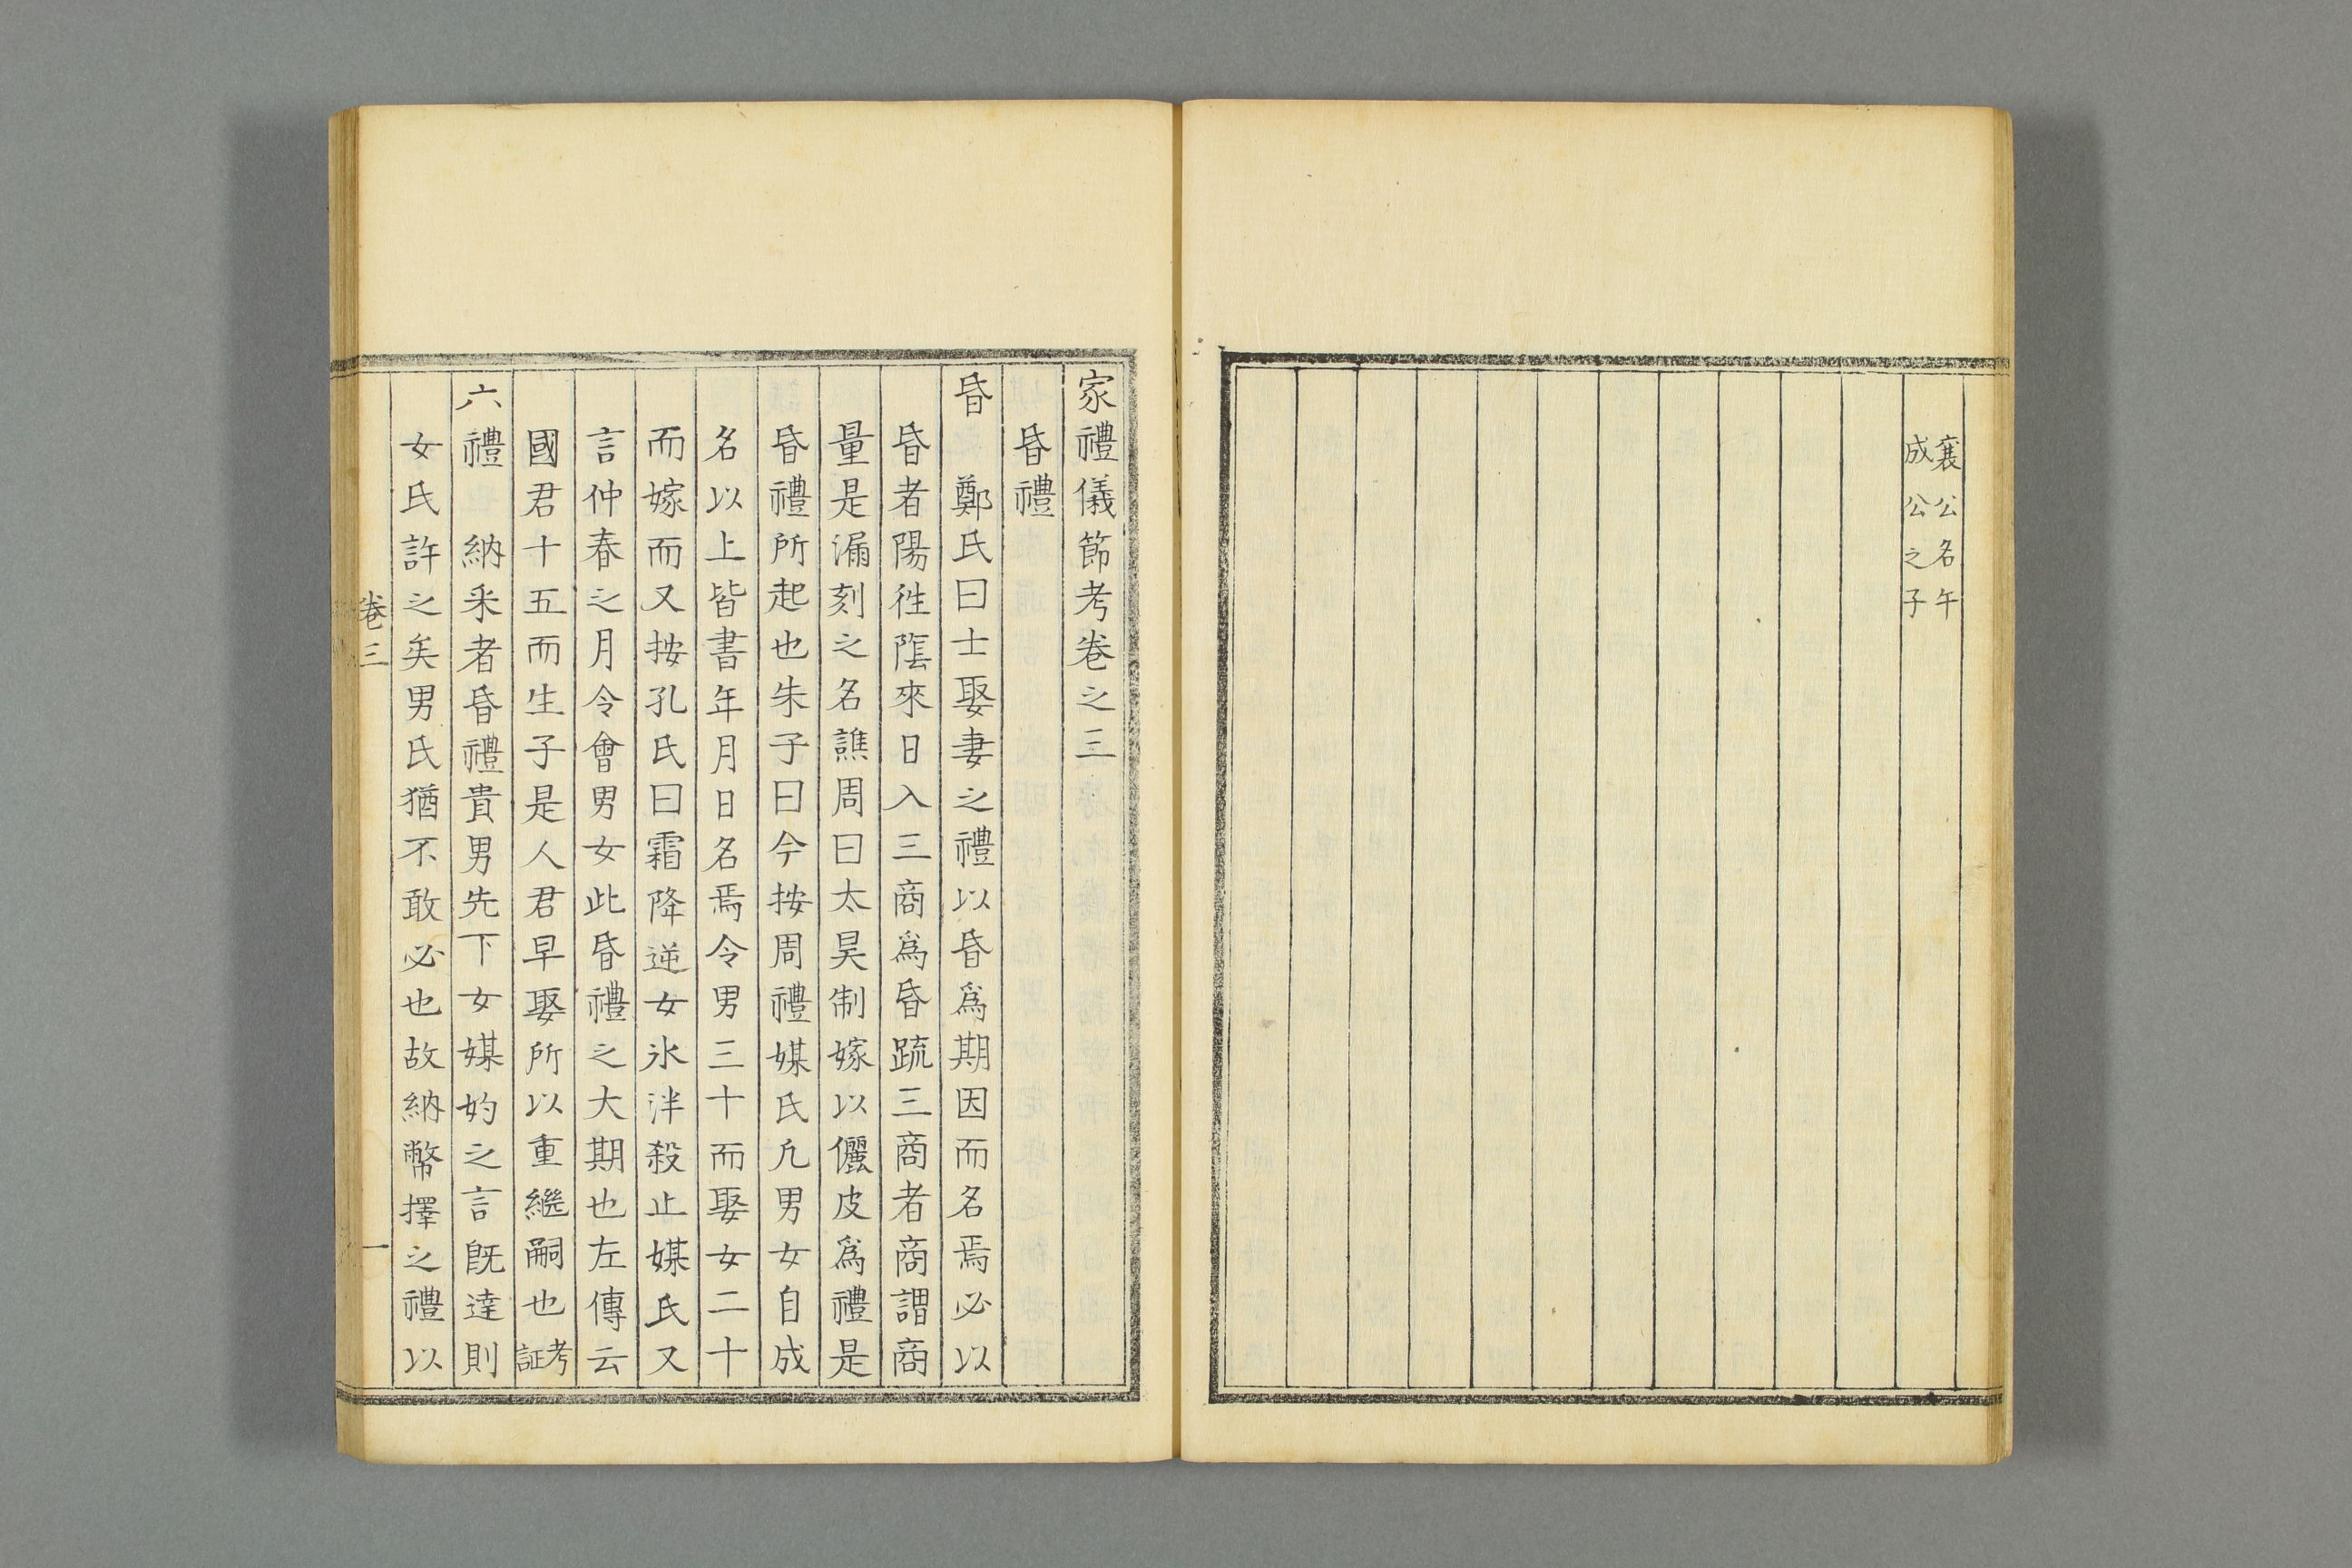 襄公名午
成公之子
家禮儀節考卷之三
昏禮
昏　鄭氏曰士娶妻之禮以昏爲期因而名焉必以
昏者陽徃隂來日入三商爲昏䟽三商者商謂商
量是漏刻之名譙周曰太昊制嫁以儷皮爲禮是
昏禮所起也朱子曰今按周禮媒氏凢男女自成
名以上皆書年月日名焉令男三十而娶女二十
而嫁而又按孔氏曰霜降逆女氷泮殺止媒氏又
言仲春之月令會男女此昏禮之大期也左傳云
國君十五而生子是人君早娶所以重繼嗣也考証
六禮　納采者昏禮貴男先下女媒妁之言旣達則
女氏許之矣男氏猶不敢必也故納幣擇之禮以
卷三
一